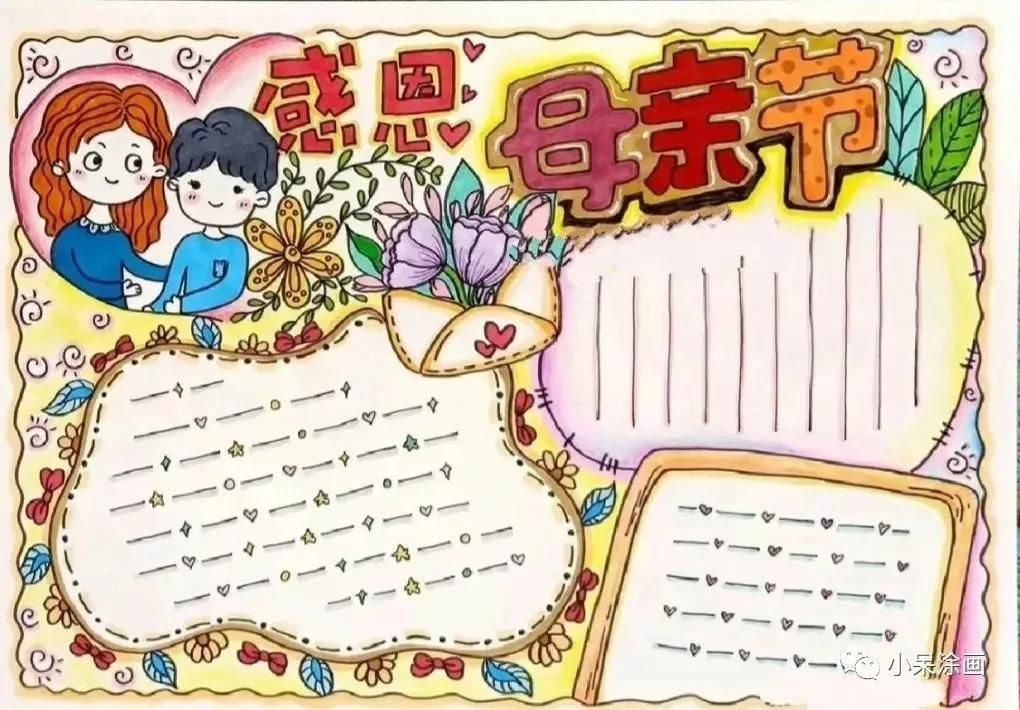 感恩
母亲节
小呆涂画